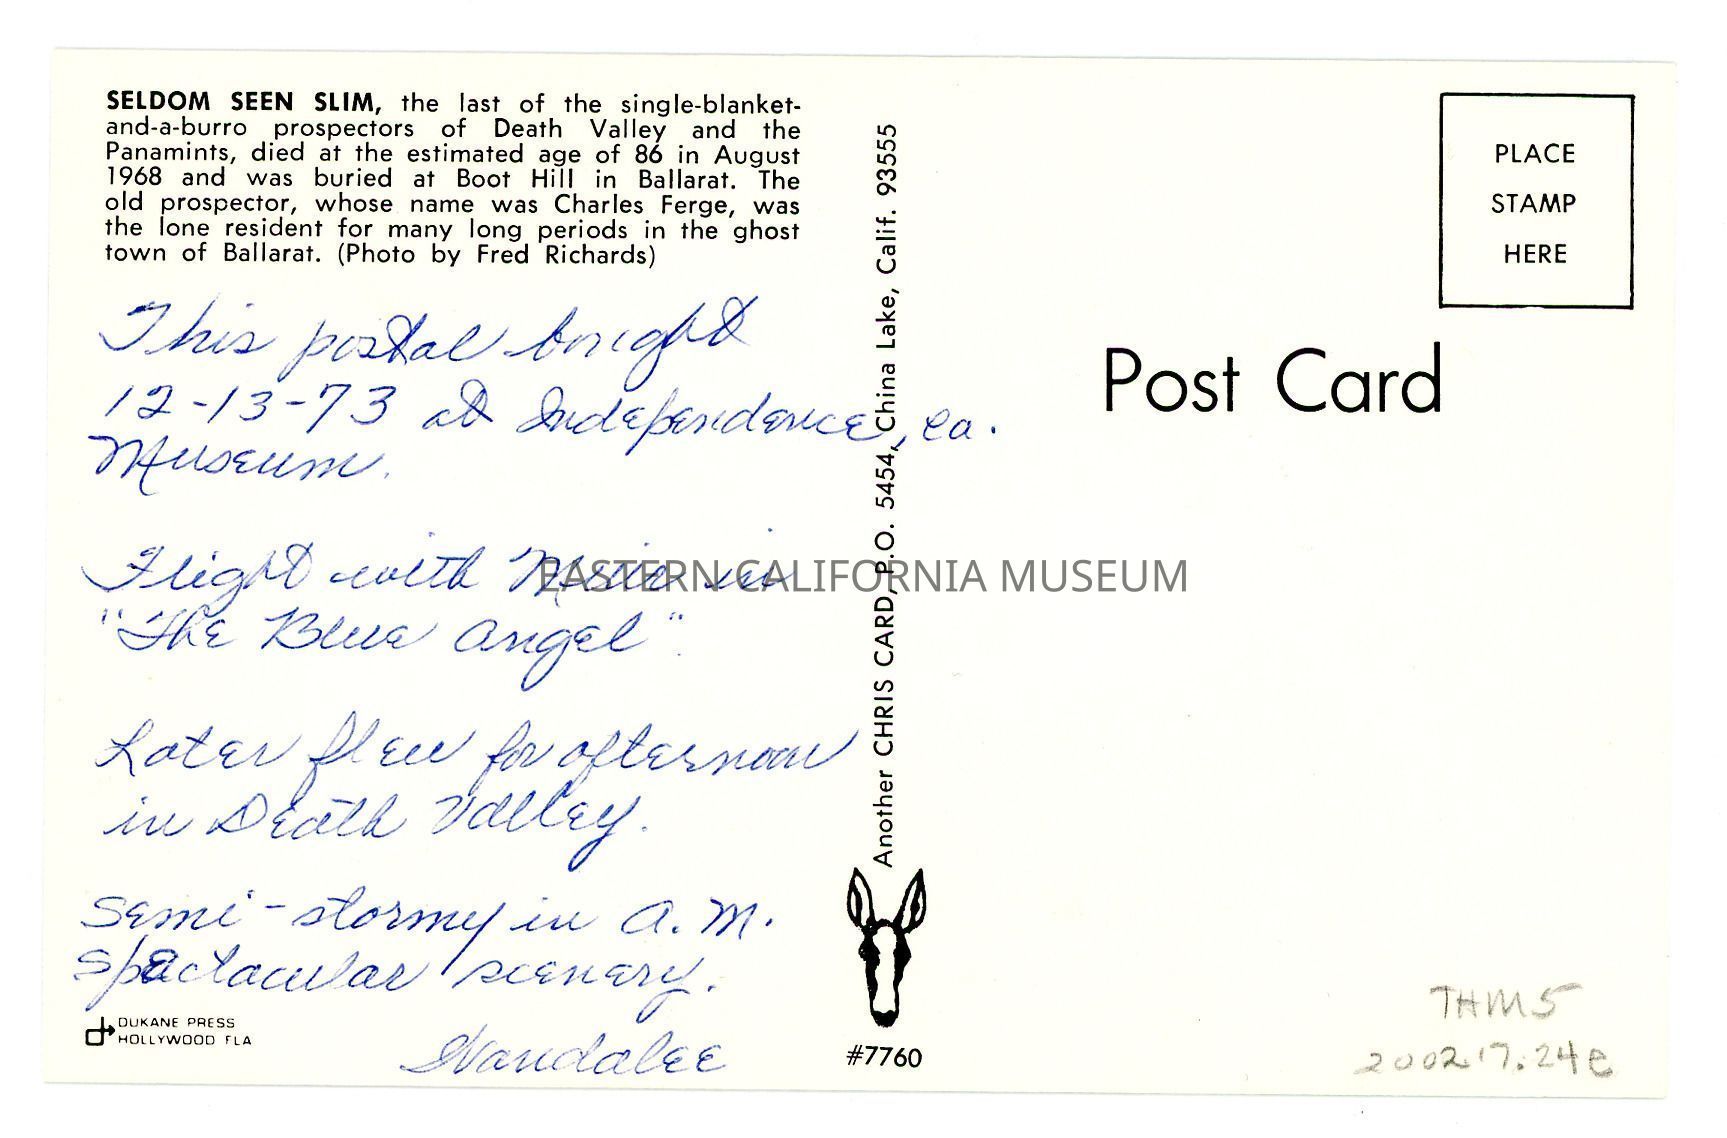 SELDOM SEEN SLIM, the last of the single-blanket-
and-a-burro prospectors of Death Valley and the
Panamints, died at the estimated age of 86 in August
1968 and was buried at Boot Hill in Ballarat. The
old prospector, whose name was Charles Ferge, was
the lone resident for many long periods in the ghost
town of Ballarat. (Photo by Fred Richards)
This postal bought
12-13-73 at Independence, Ca.
Museum.
Flight with in
"The Blue Angel".
Later flew for afternoon
in Death Valley.
Semi-stormy in A.M.
Spectacular scenery.
Vandalee
DUKANE PRESS
HOLLYWOOD FLA
Another CHRIS CARD, P.O. 5454, China Lake, Calif. 93555
#7760
PLACE
STAMP
HERE
Post Card
EASTERN CALIFORNIA MUSEUM
THM5
2002.17.24e